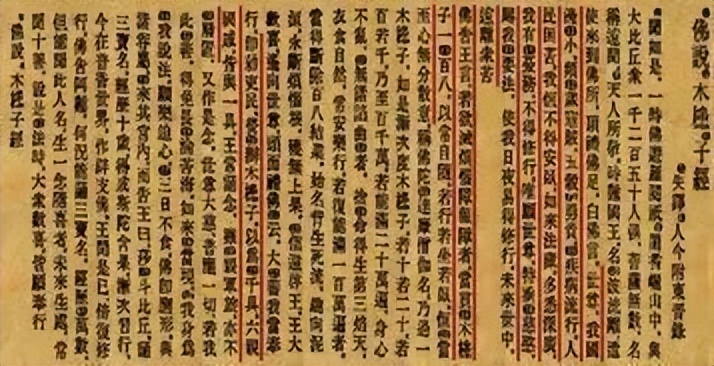 佛說木槵子經
失譯人今附東晉錄
聞如是。一時佛遊羅閱祇耆闍崛山中。與
大比丘衆一千二百五十人俱。菩薩無數。名
稱遠聞。天人所敬。時難國王。名波流離。遣
使來到佛所。頂禮佛足。白佛言。世尊。我國
邊小。頻歲寇賊。五穀勇貴。疾病流行。人
民困苦。我恒不得安臥。如來法藏。多悉深廣。
我有憂務。不得修行。唯願世尊。特垂慈愍。
賜我要法。使我日夜易得修行。未來世中。
遠離衆苦
佛告王言。若欲滅煩惱障報障者。當貫木槵
子一百八。以常自隨。若行若坐若臥。恒當
至心無分散意。稱佛陀達摩僧伽名。乃過一
木槵子。如是漸次度木槵子。若十若二十。若
百若千。乃至百千萬。若能滿二十萬遍。身心
不亂。無諸諂曲者。捨命得生第三焰天。
衣食自然。常安樂行。若復能滿一百萬遍者。
當得斷除百八結業。始名背生死流。趣向泥
洹。永斷煩惱根。獲無上果。信還啓王。王大
歡喜。遙向世尊。頭面禮佛云。大善。我當奉
行。即勅吏民。營辦木槵子。以爲千具。六親
國戚。皆與一具。王常誦念。雖親軍旅。亦不
廢置。又作是念。世尊大慈。普應一切。若我
此善。得免長淪苦海。如來當現。爲我
說法。願樂迫心。三日不食。佛即應形。與
諸聖衆。來其宮內。而告王曰。莎斗比丘。誦
三寶名。經歷十歲。得成斯陀含果。漸次習行。
今在普香世界。作辟支佛。王聞是已。倍復修
行。佛告阿難。何況能誦三寶名。經歷萬數。
但能聞此人名。生一念隨喜者。未來生處。常
聞十善。說是法時。大衆歡喜。皆願奉行
佛說木槵子經